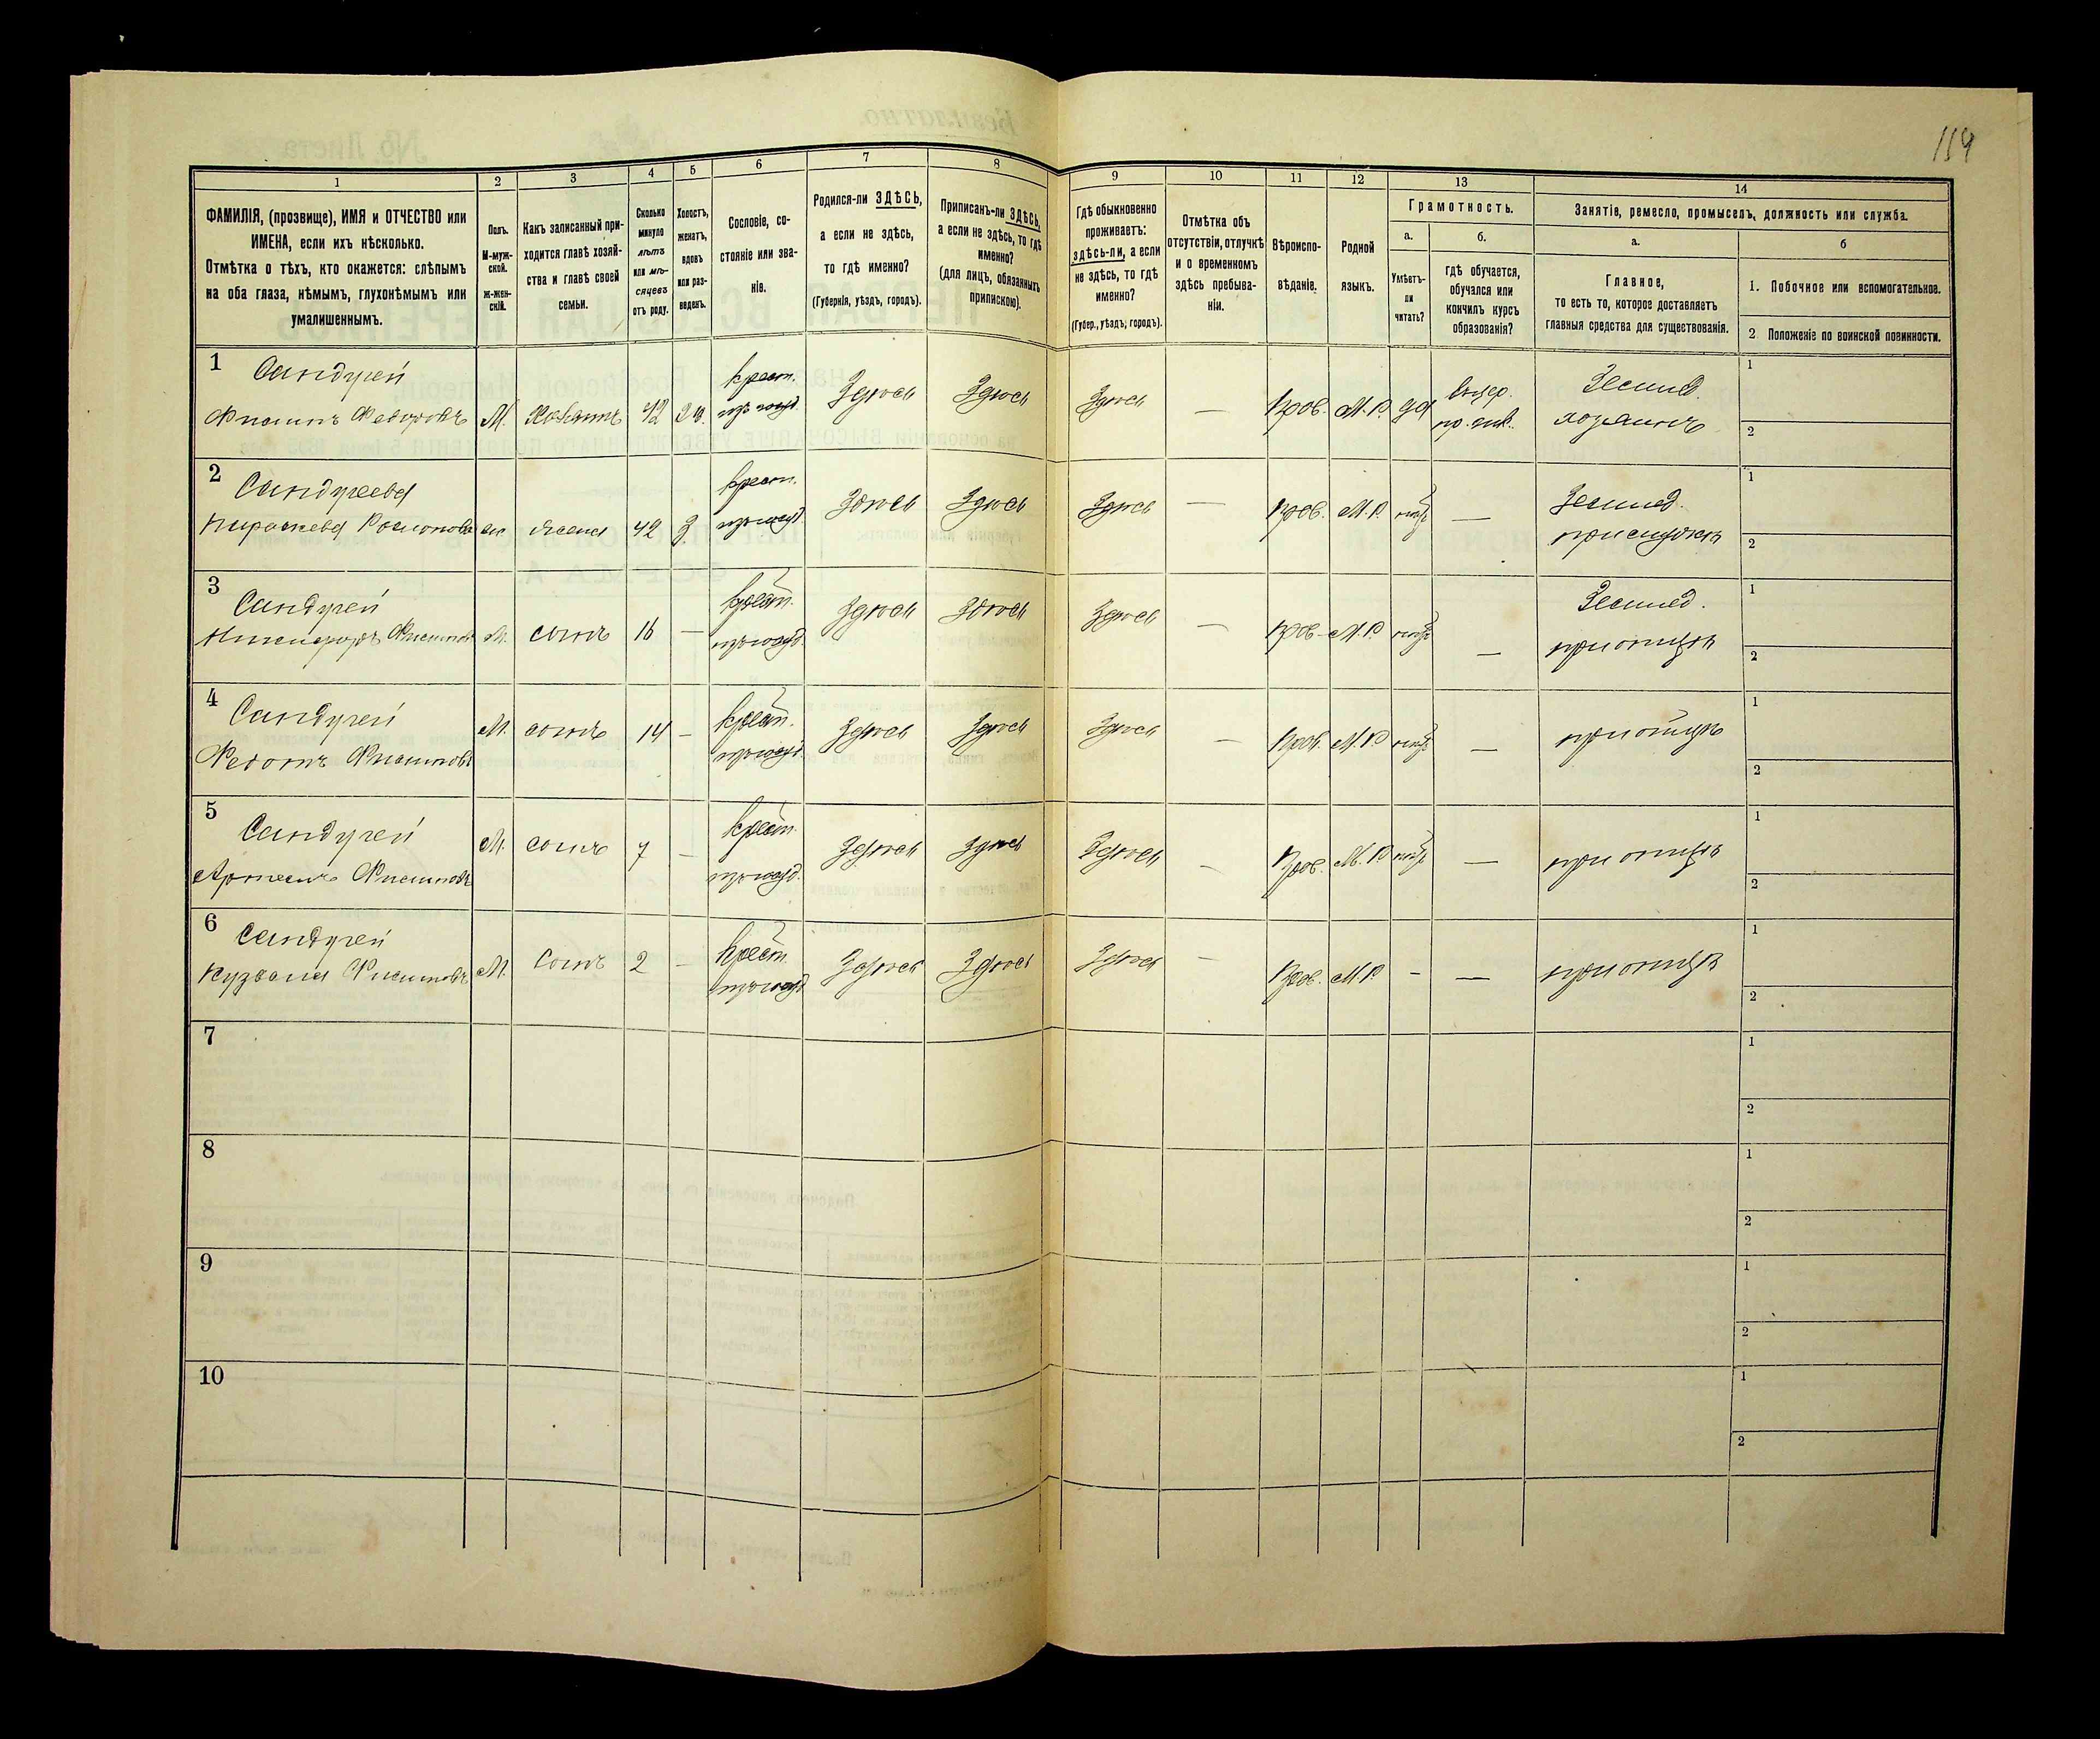 119
1
2
3
4
5
6
7
8
9
10
11
12
13
14
ФАМИЛІЯ, (прозвище), ИМЯ и ОТЧЕСТВО или
ИМЕНА, если ихъ нѣсколько.
Отмѣтка о тѣхъ, кто окажется: слѣпымъ
на оба глаза, нѣмымъ, глухонѣмымъ или
умалишеннымъ.
Полъ.
М-муж-
ской.
Ж-жен-
скій.
Какъ записанный при-
ходится главѣ хозяй-
ства и главѣ своей
семьи.
Сколько
минуло
лѣтъ
или мѣ-
сяцевъ
отъ роду.
Холостъ,
женатъ,
вдовъ
или раз-
веденъ.
Сословіе, со-
стояніе или зва-
ніе.
Родился-ли ЗДѢСЬ,
а если не здѣсь,
то гдѣ именно?
(Губернія, уѣздъ, городъ).
Приписанъ-ли ЗДѢСЬ,
а если не здѣсь, то гдѣ
именно?
(для лицъ, обязанныхъ
припискою).
Гдѣ обыкновенно
проживаетъ:
здѣсь-ли, а если
не здѣсь, то гдѣ
именно?
(Губер., уѣздъ, городъ).
Отмѣтка объ
отсутствіи, отлучкѣ
и о временномъ
здѣсь пребыва-
ніи.
Вѣроиспо-
вѣданіе.
Родной
языкъ.
Грамотность.
а.
Умѣетъ-
ли
читать?
б.
гдѣ обучается,
обучался или
кончилъ курсъ
образованія?
Занятіе, ремесло, промыселъ, должность или служба.
а.
Главное,
то есть то, которое доставляетъ
главныя средства для существованія.
б
1. Побочное или вспомогательное.
2 Положеніе по воинской повинности.
1
Сандугей
Фисинъ Федоровъ М. Хозяинъ 42 крест. Здѣсь Здѣсь Здѣсь — Прав. М. Р. да Землед. хозяинъ
1
2
2
Сандугеева
жена 42 крест. Здѣсь Здѣсь Здѣсь — Прав. М. Р. — Землед.
1
2
3
Сандугей
М. сынъ 16 — крест. Здѣсь Здѣсь Здѣсь — Прав. М. Р. — Землед. при отцѣ
1
2
4
Сандугей
Федотъ М. сынъ 14 — крест. Здѣсь Здѣсь Здѣсь — Прав. М. Р. — при отцѣ
1
2
5
Сандугей
Артемъ М. сынъ 7 — крест. Здѣсь Здѣсь Здѣсь — Прав. М. Р. — при отцѣ
1
2
6
Сандугей
Кузьма М. сынъ 2 — крест. Здѣсь Здѣсь Здѣсь — Прав. М. Р. — — при отцѣ
1
2
7
1
2
8
1
2
9
1
2
10
1
2